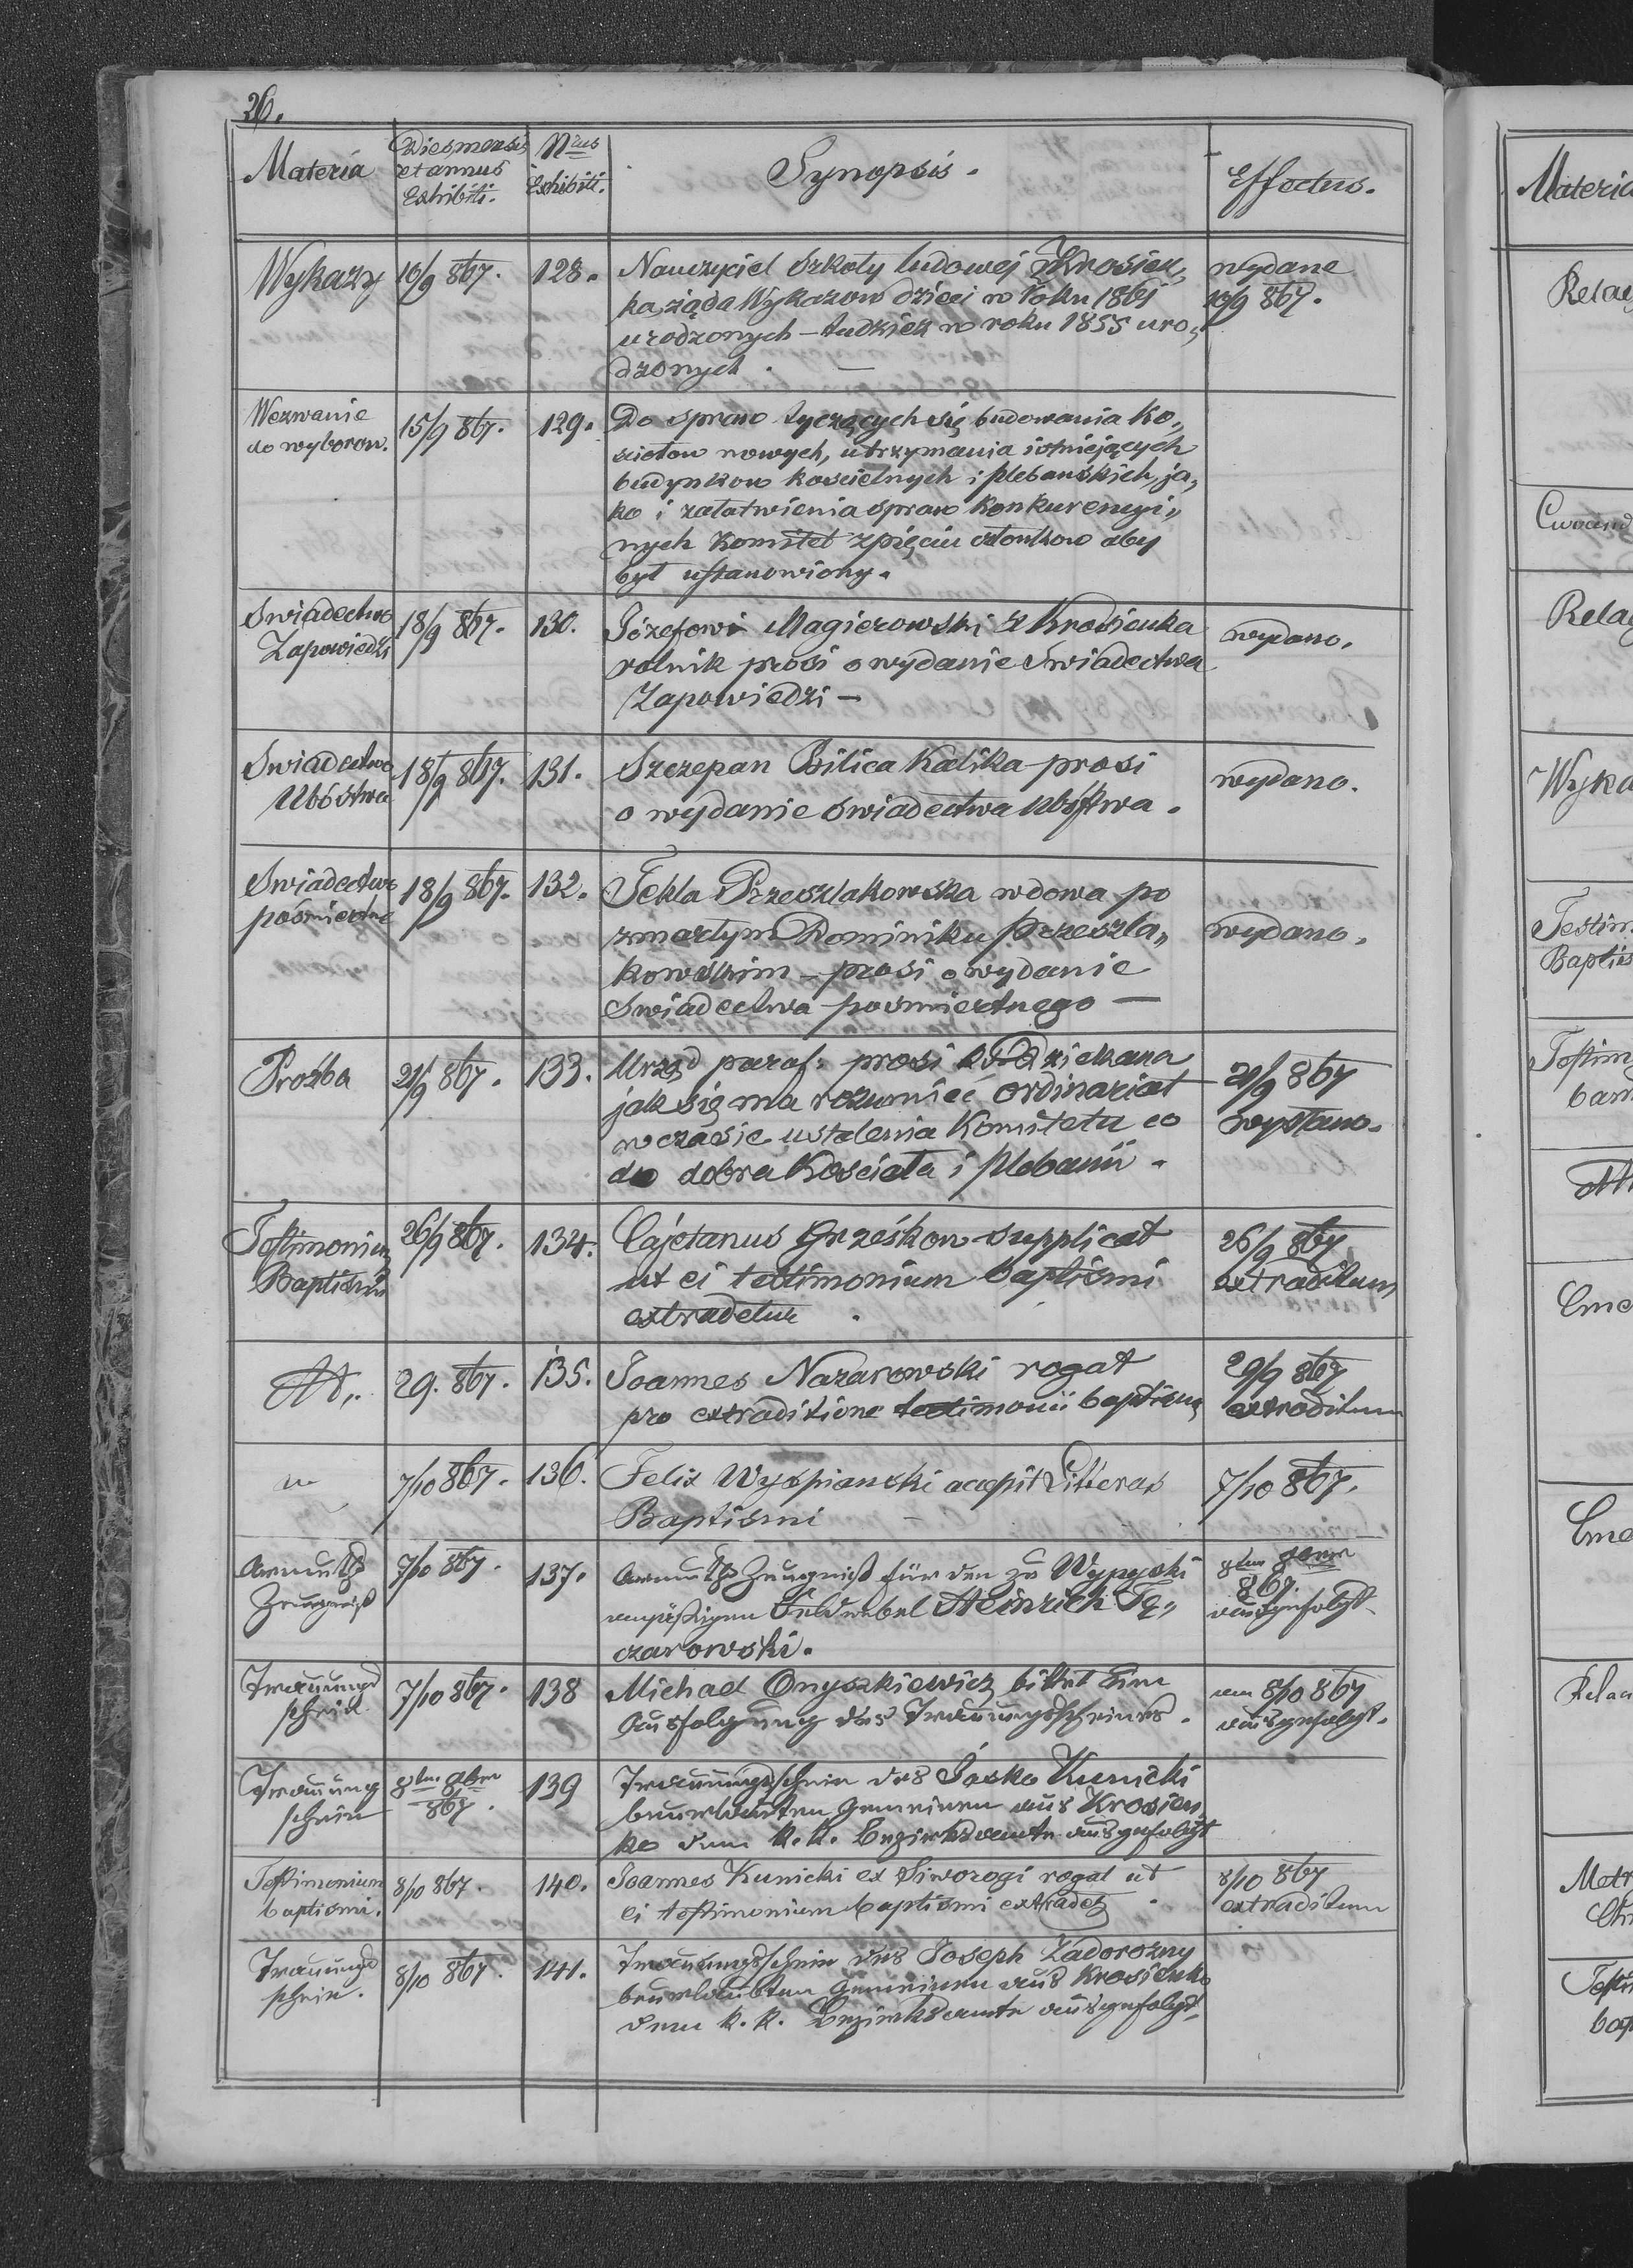 26.
Materia
Dies mensis
et annus
Exhibiti.
Nrus
Exhibiti.
Synopsis.
Effectus.
Wykazy
10/9 867.
128.
Nauczyciel szkoły ludowej z Krosien„
ka, żąda Wykazow dzieci w roku 1861
urodzonych – tudzież w roku 1855 uro„
dzonych. –
wydane
10/9 867.
Wezwanie
do wyborow.
15/9 867.
129.
Do spraw tyczących się budowania ko„
sciołow nowych, utrzymania istniejących
budynkow koscielnych i plebańskich, ja„
ko i załatwienia spraw konkurencyi„
nych Komitet z pięciu członkow aby
był ustanowiony.
Swiadectwo
Zapowiedzi
18/9 867.
130.
Józefowi Magierowski z Krosienka
rolnik prosi o wydanie Swiadectwa
Zapowiedzi –
wydano.
Swiadectwo
Ubóstwa
18/9 867.
131.
Szczepan Bilica Kalika prosi
o wydanie swiadectwa Ubóstwa.
wydano.
Swiadectwo
pośmiertne
18/9 867.
132.
Tekla Przeszlakowska wdowa po
zmarłym Dominiku Przeszla„
kowskim – prosi o wydanie
Swiadectwa posmiertnego –
wydano.
Proźba
21/9 867.
133.
Urząd paraf: prosi Dziekana
jak się ma rozumieć ordinariat
w czasie ustalenia Komitetu co
do dobra Kościoła i Plebanii.
21/9 867
wysłano.
Testimonium
Baptismi
26/9 867.
134.
Cajetanus Grześkow supplicat
ut ei testimonium baptismi
extradetur.
26/9 867
extraditum
dtt„.
29. 867.
135.
Joannes Nazarowski rogat
pro extraditione testimonii baptismi
29/9 867
extraditum
"
7/10 867.
136.
Felix Wyspianski accepit Litteras
Baptismi –
7/10 867.
Armuths
Zeugniß
7/10 867.
137.
Armuths Zeugniß für den zu Wypyski
ansäßigen Feldwebel Heinrich Tę„
czarowski.
8ten 8ber
867.
ausgefolgt
Trauungs
schein
7/10 867.
138
Michael Onyszkiewicz bittet um
Ausfolgung des Trauungsscheines.
am 8/10 867
ausgefolgt.
Trauung
schein
8ten 8ber
867.
139
Trauungsschein des Jaśko Kunicki
beurlaubten Gemeinen aus Krosien„
ko dem k. k. Bezirksamte ausgefolgt
Testimonium
baptismi.
8/10 867.
140.
Joannes Kunicki ex Siworogi rogat ut
ei testimonium baptismi extradetr.
8/10 867
extraditum
Trauungs
schein.
8/10 867.
141.
Trauungsschein des Joseph Zadorozny
beurlaubten Gemeinen aus Krosienko
dem k. k. Bezirksamte ausgefolgt.
Materia
Wyka